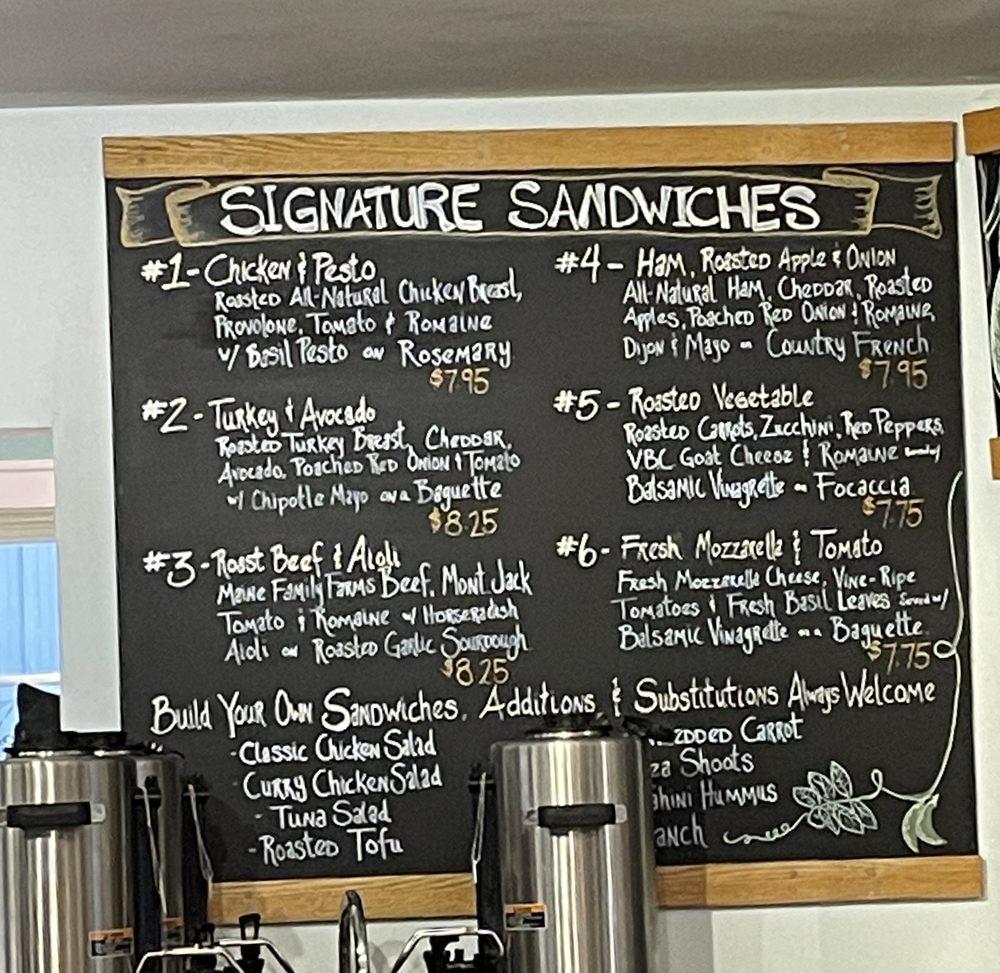 SIGNATURE SANDWICHES
#1 - Chicken & Pesto
Roasted All-Natural Chicken Breast,
Provolone, Tomato & Romaine
w/ Basil Pesto on Rosemary
$7.95
#2 - Turkey & Avocado
Roasted Turkey Breast, Cheddar,
Avocado, Poached Red Onion & Tomato
w/ Chipotle Mayo on a Baguette
$8.25
#3 - Roast Beef & Aioli
Maine Family Farms Beef, Mont. Jack
Tomato & Romaine w/ Horseradish
Aioli on Roasted Garlic Sourdough
$8.25
#4 - Ham, Roasted Apple & Onion
All-Natural Ham, Cheddar, Roasted
Apples, Poached Red Onion & Romaine,
Dijon & Mayo on Country French
$7.95
#5 - Roasted Vegetable
Roasted Carrots, Zucchini, Red Peppers,
VBC Goat Cheese & Romaine
Balsamic Vinagrette on Focaccia
$7.75
#6 - Fresh Mozzarella & Tomato
Fresh Mozzarella Cheese, Vine-Ripe
Tomatoes & Fresh Basil Leaves
Balsamic Vinagrette on a Baguette
$7.75
Build Your Own Sandwiches, Additions & Substitutions Always Welcome
- Classic Chicken Salad
- Curry Chicken Salad
- Tuna Salad
- Roasted Tofu
Carrot
Shoots
Hummus